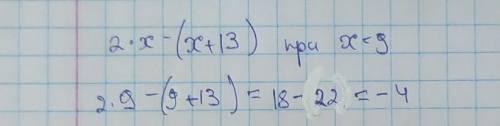 2·x-(x+13) при x=9
2·9-(9+13)=18-(22)=-4